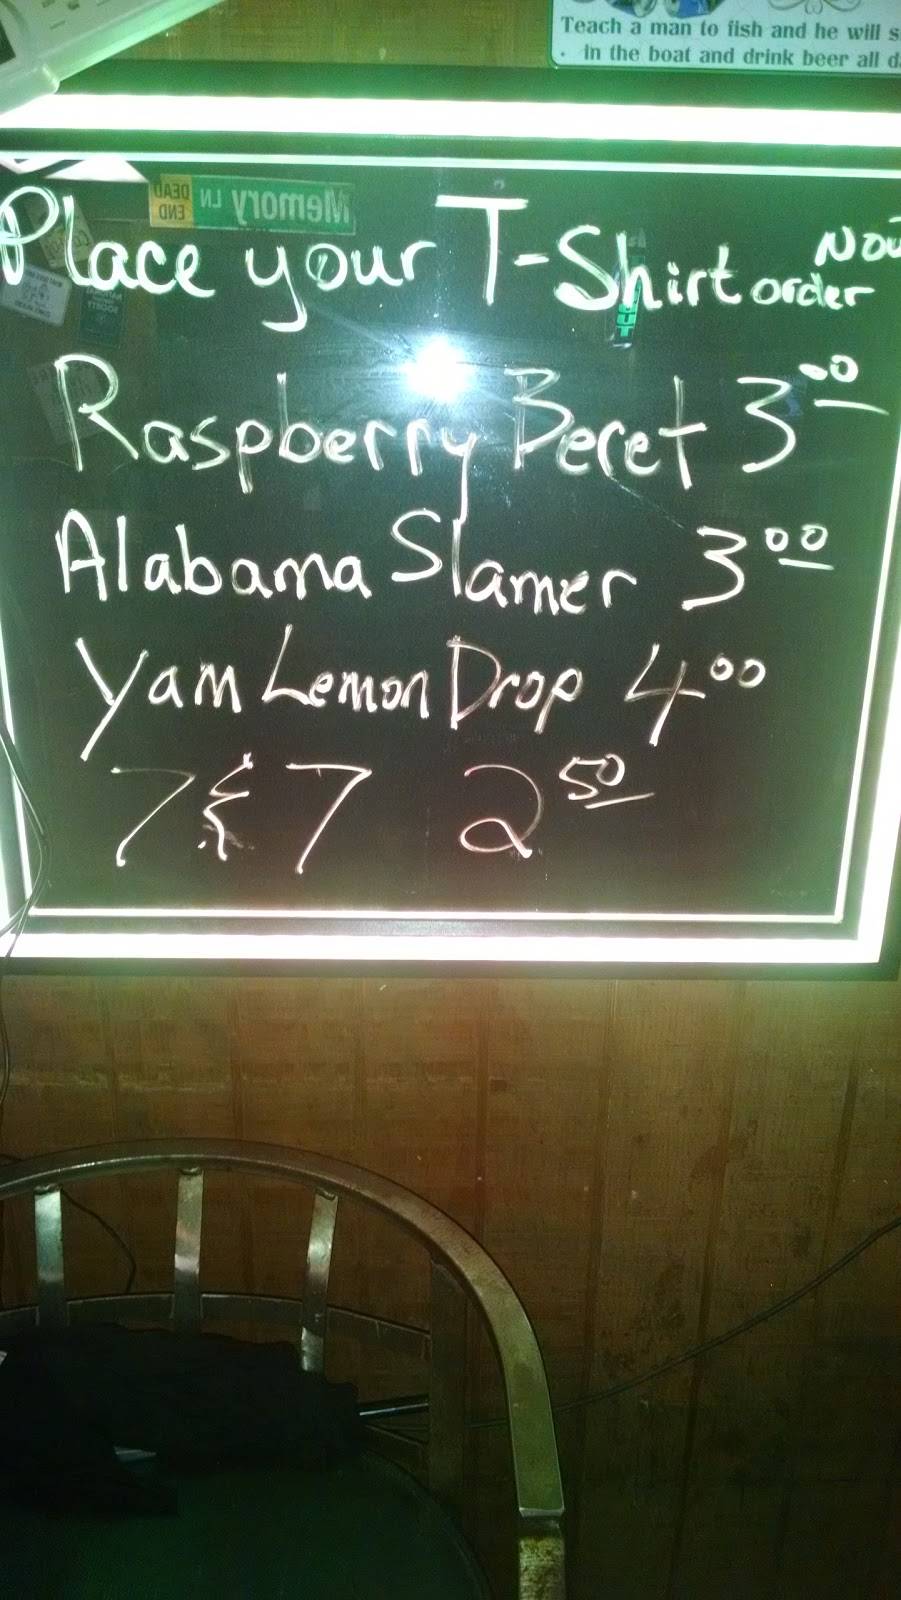 Teach a man to fish and he will s
in the boat and drink beer all d
Memory LN DEAD END
Place your T-Shirt order Now
Raspberry Beret 3.00
Alabama Slamer 3 00
Yam Lemon Drop 4 00
7 & 7 2 50